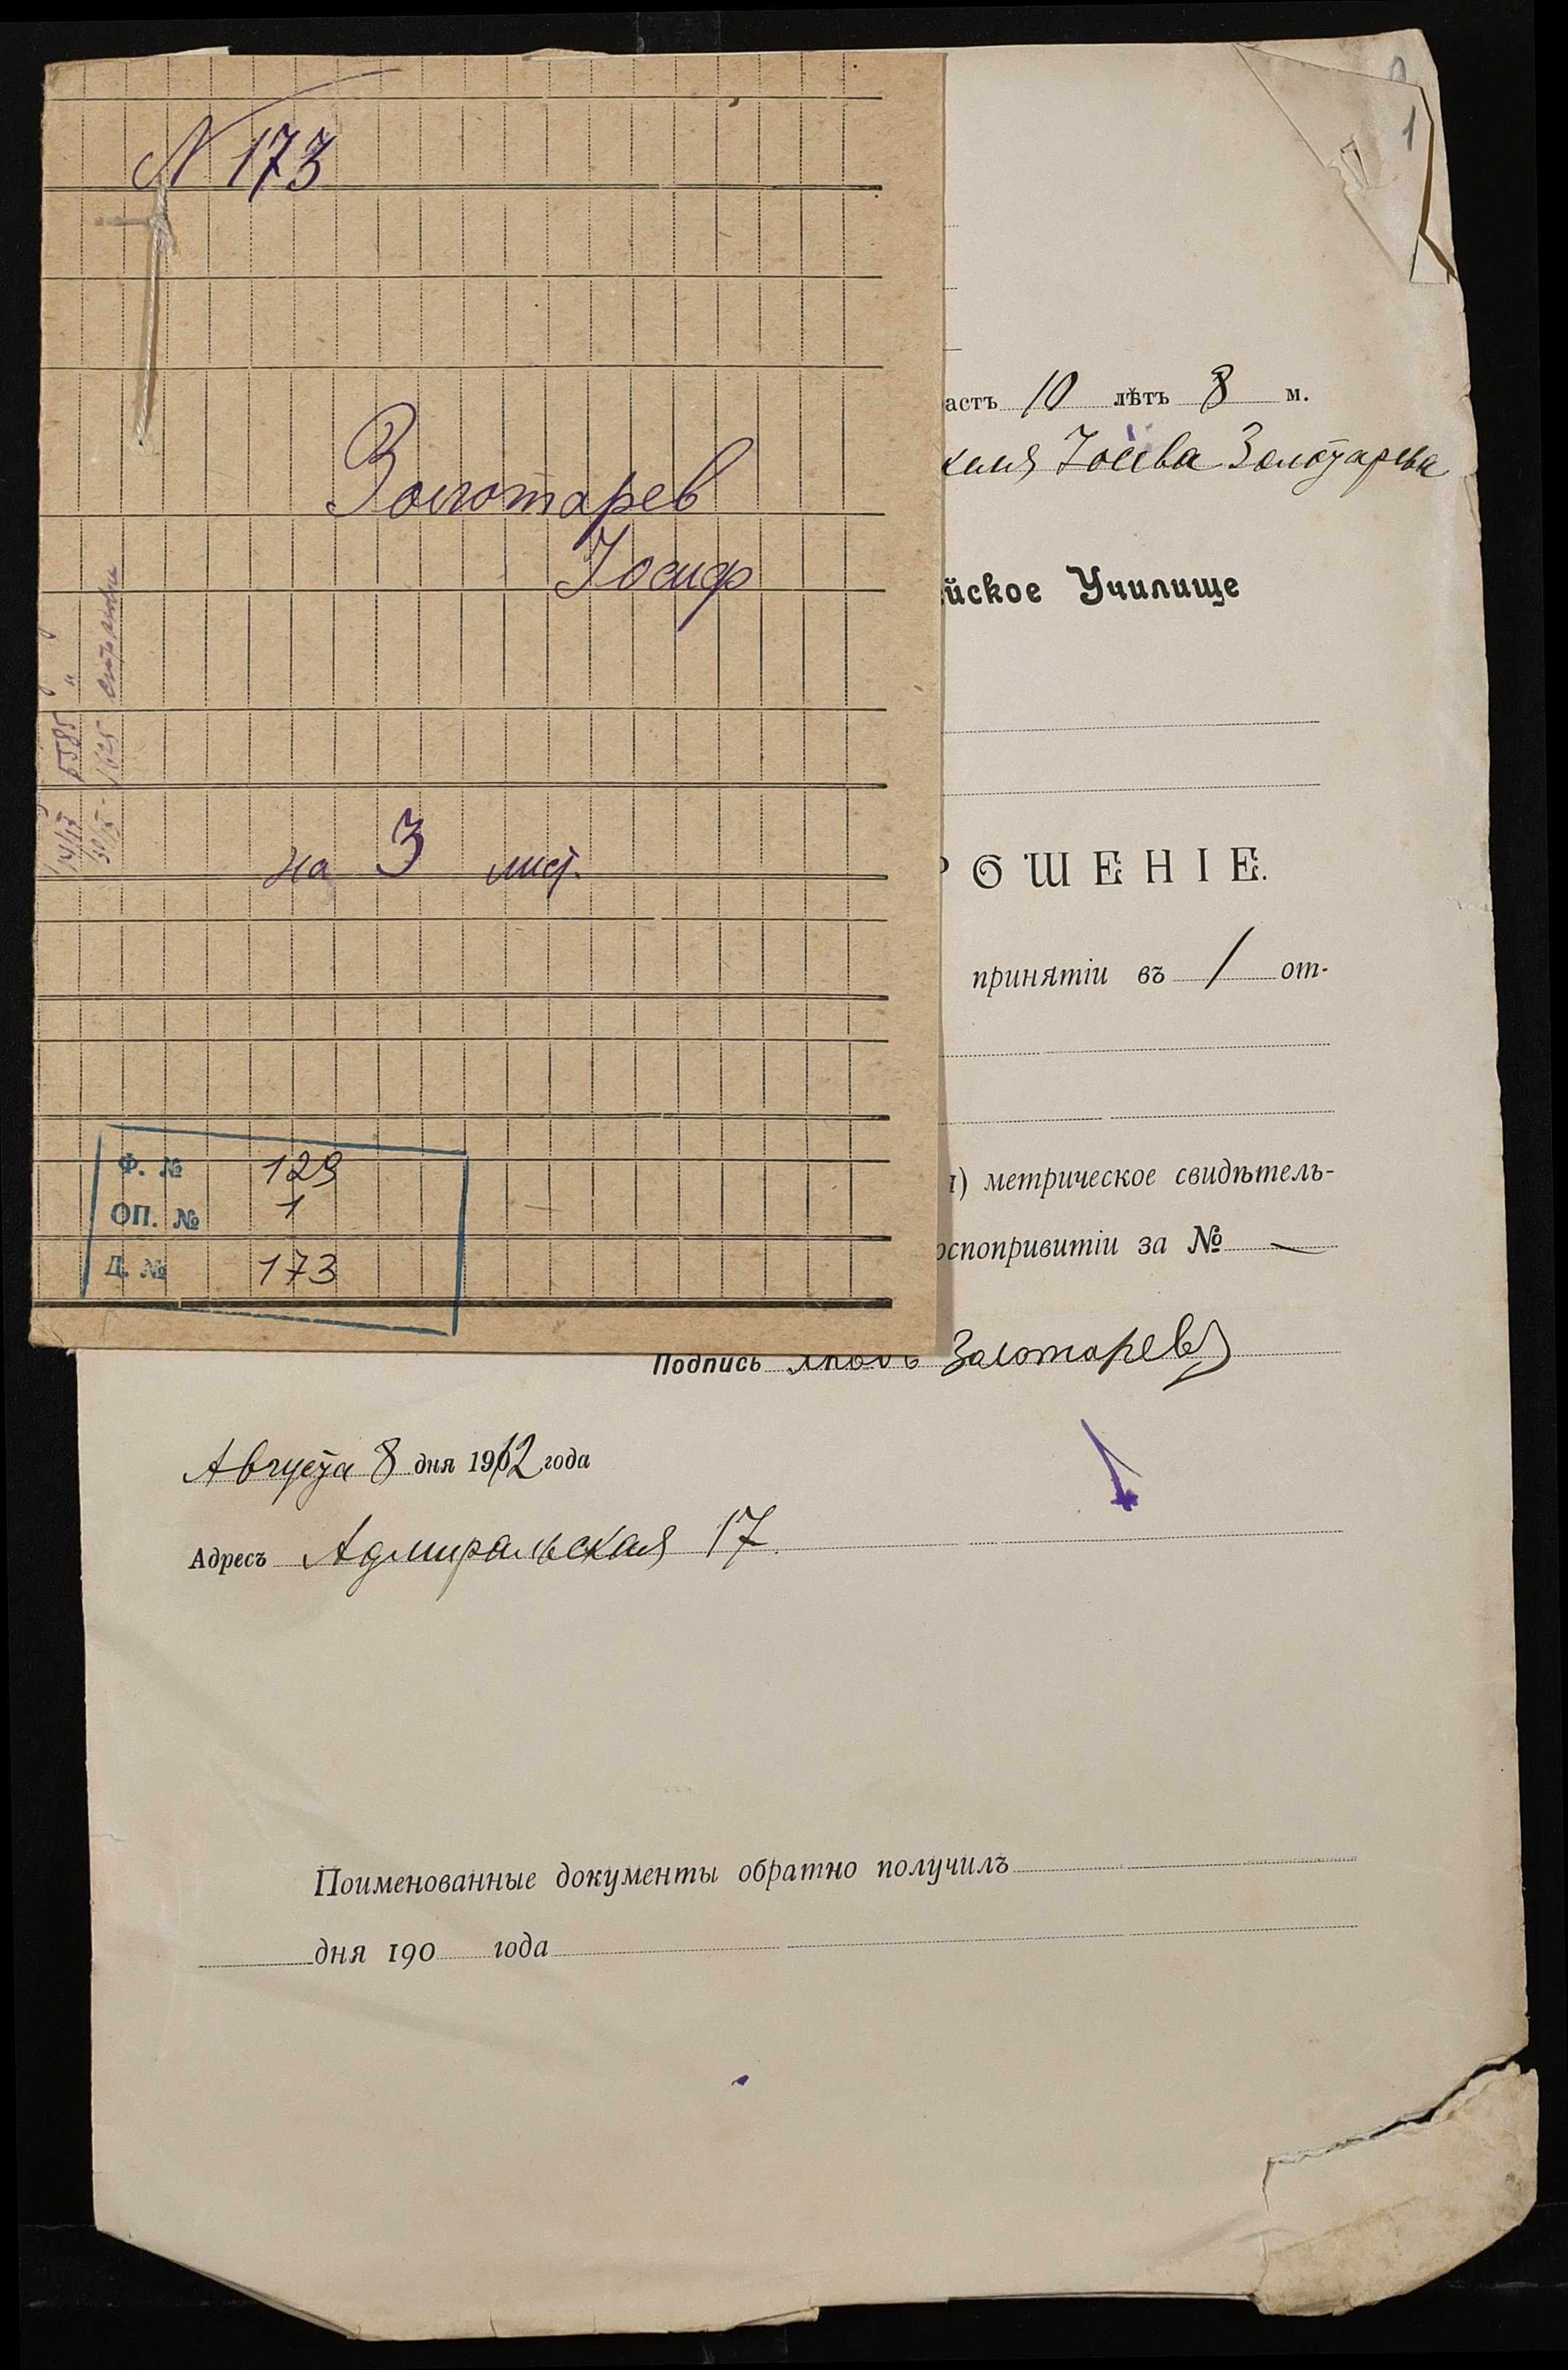 N 173
Золотарев
Иосиф
на 3 лист.
Ф. № 129
ОП. № 1
Д. № 173
1
астъ 10 лѣтъ 8 м.
Іосева Золотарева
йское Училище
РОШЕНІЕ.
принятіи въ 1 от-
) метрическое свидѣтель-
оспопривитіи за №
Подпись Золотаревъ
Августа 8 дня 1912 года
Адресъ Адмиральская 17.
Поименованные документы обратно получилъ
дня 190 года